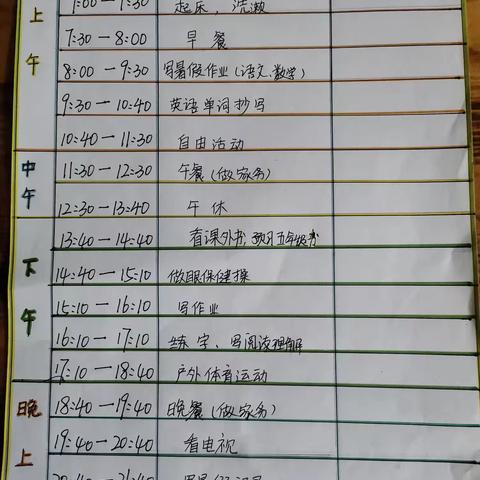 上午
7:30—8:00 早餐
8:00—9:30 写暑假作业(语文、数学)
9:30—10:40 英语单词抄写
10:40—11:30 自由活动
中午
11:30—12:30 午餐(做家务)
12:30—13:40 午休
下午
13:40—14:40 看课外书,预习五年级书
14:40—15:10 做眼保健操
15:10—16:10 写作业
16:10—17:10 练字、写阅读理解
17:10—18:40 户外体育运动
晚上
18:40—19:40 晚餐(做家务)
19:40—20:40 看电视